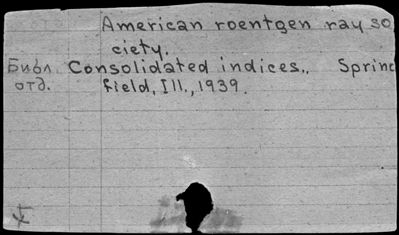 American roentgen ray so
ciety.
Библ. Consolidated indices.. Spring
отд. field, Ill., 1939.